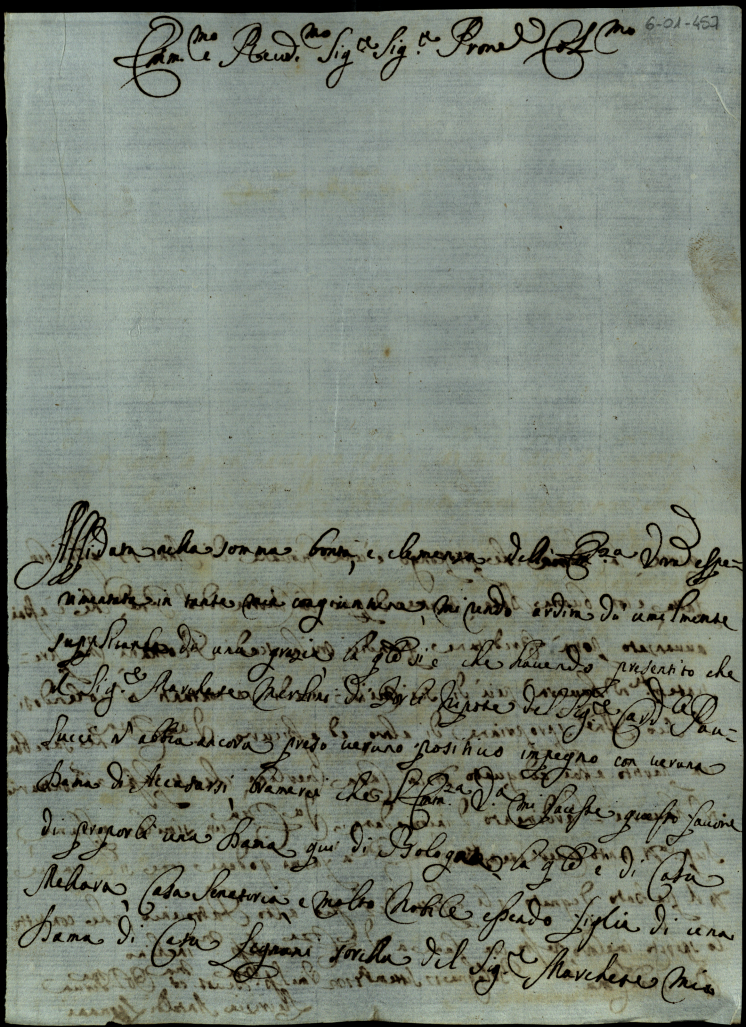 6-01-457
Emm.mo e Reud.mo Sig.re Sig.re Prone Col.mo
Affidata nella somma bontà, e clemenza dell' Em.za V.ra espe=
rimentata in tante mie congiunture, mi rendo ardita di umilmente
supplicarla di una grazia, la qle si è che havendo presentito che
il Sig.re Marchese Merlini di Forlì Nipote del Sig.re Card.le Pau=
lucci n' abbia ancora preso veruno positivo impegno con veruna
Dama di Accasarsi, bramarei che l' Emm.za V.a mi facesse questo favore
di proporli una Dama qui di Bologna la qle è di Casa
Melara, Casa Senatoria e molto Nobile essendo figlia di una
Dama di Casa Legnani sorella del Sig.re Marchese mio